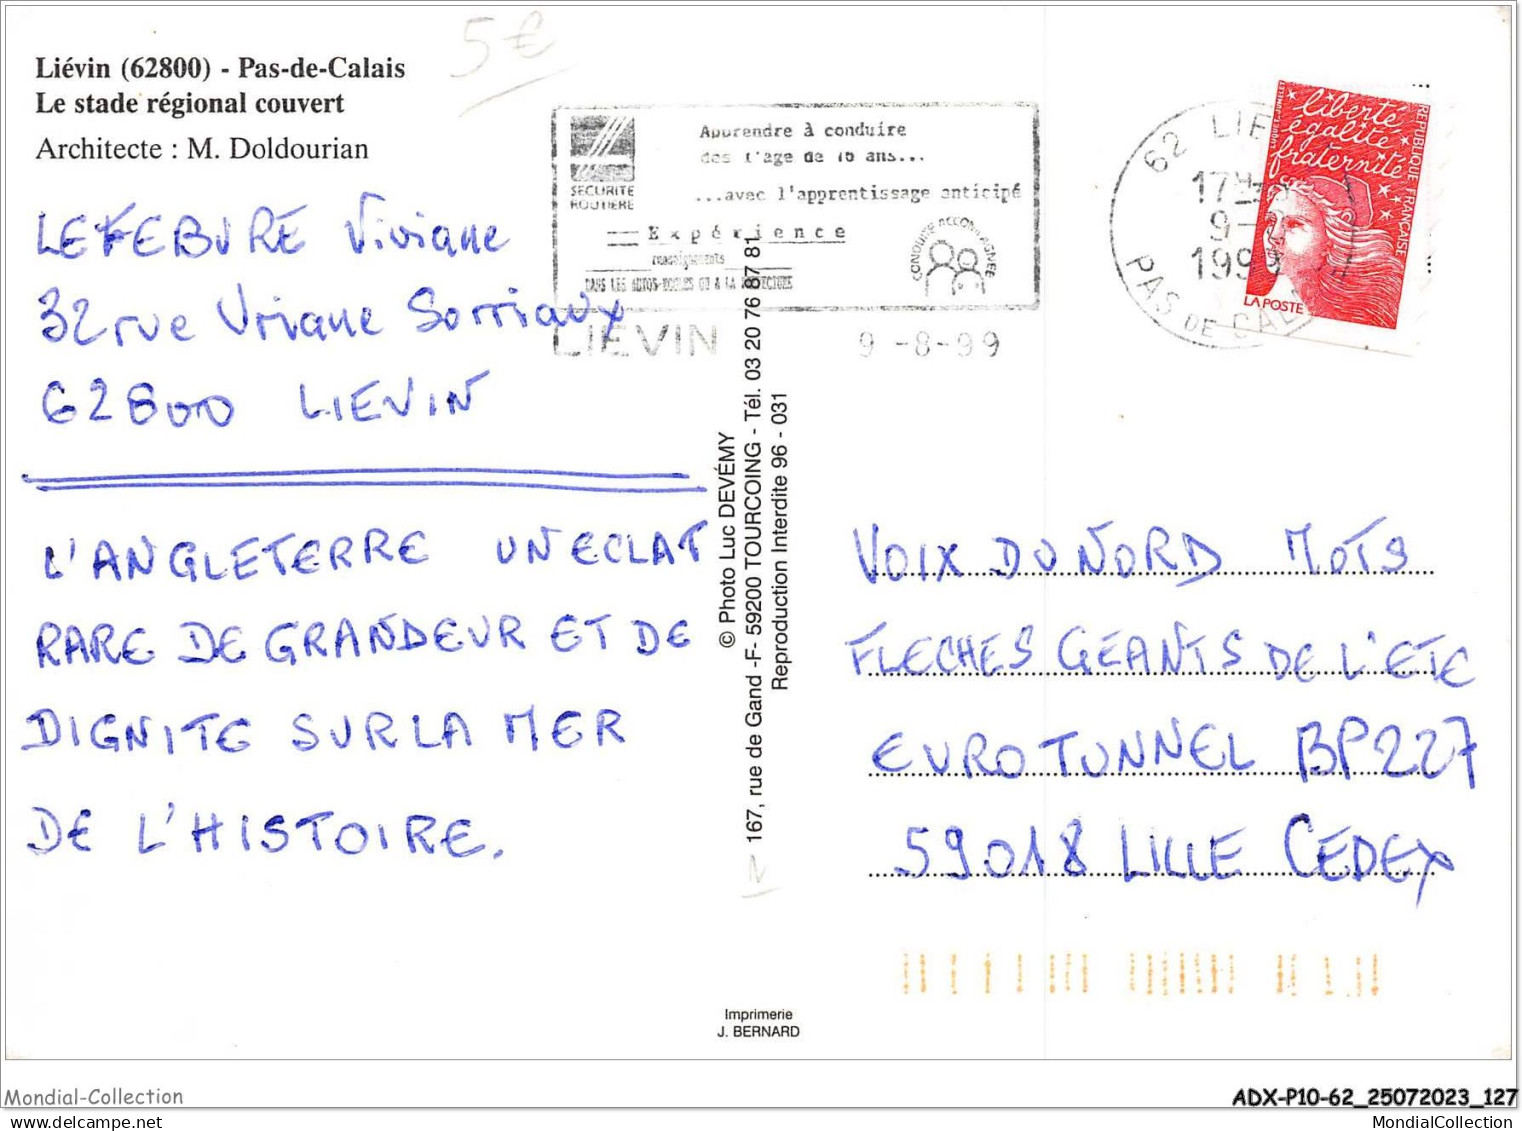 5€
Liévin (62800) - Pas-de-Calais
Le stade régional couvert
Architecte : M. Doldourian
LEFEBVRE Viviane
32 rue Viviane Sorriaux
62800 LIEVIN
L'ANGLETERRE UN ECLAT
RARE DE GRANDEUR ET DE
DIGNITE SUR LA MER
DE L'HISTOIRE.
SECURITE
ROUTIERE
Apprendre à conduire
dès l'âge de 16 ans...
...avec l'apprentissage anticipé
Expérience
renseignements
DANS LES AUTOS-ECOLES OU A LA PREFECTURE
CONDUITE ACCOMPAGNEE
LIEVIN
9-8-99
62 LIE
17H
9-
1999
PAS DE CAL
liberté
égalité
fraternité
RÉPUBLIQUE FRANÇAISE
LA POSTE
© Photo Luc DEVÉMY
167, rue de Gand -F- 59200 TOURCOING - Tél. 03 20 76 87 81
Reproduction Interdite 96 - 031
N
VOIX DU NORD MOTS
FLECHES GEANTS DE L'ETE
EUROTUNNEL BP227
59018 LILLE CEDEX
Imprimerie
J. BERNARD
Mondial-Collection
ADX-P10-62_25072023_127
MondialCollection